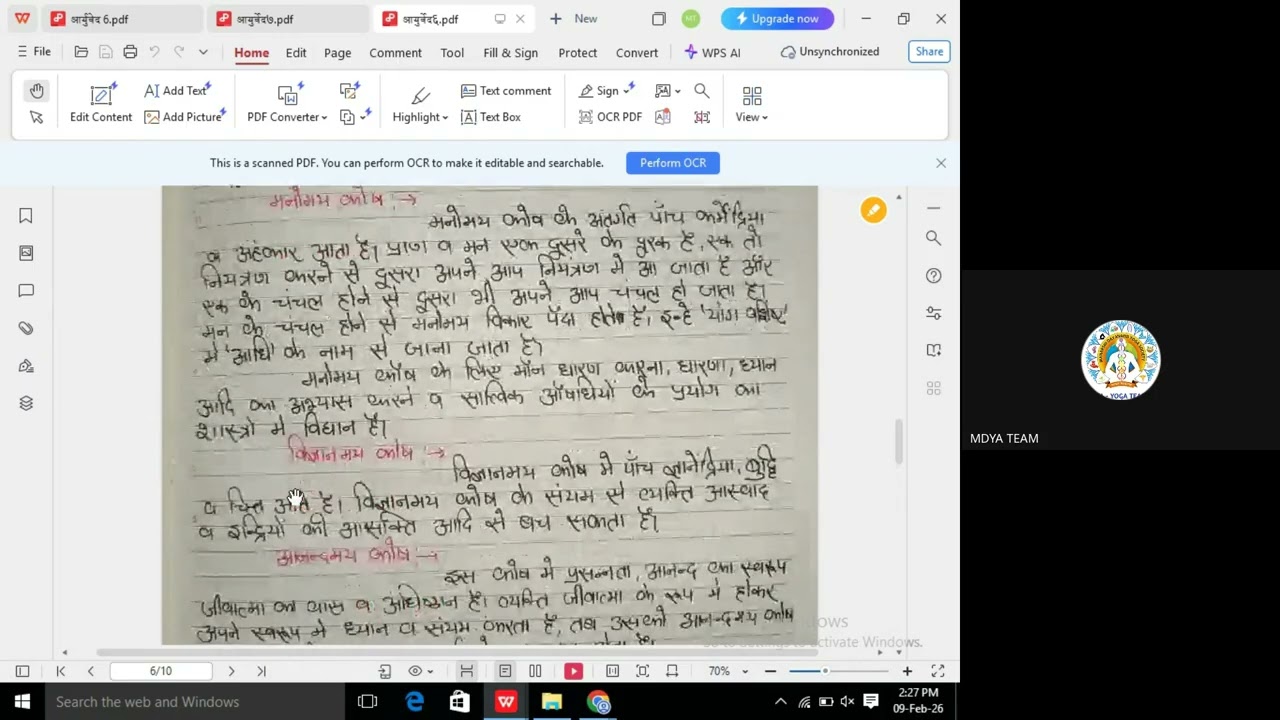 आयुर्वेद 6.pdf
आयुर्वेद७.pdf
आयुर्वेद६.pdf
New
MT
Upgrade now
File
Home
Edit
Page
Comment
Tool
Fill & Sign
Protect
Convert
WPS AI
Unsynchronized
Share
Edit Content
Add Text
Add Picture
PDF Converter
Highlight
Text comment
Text Box
Sign
OCR PDF
View
This is a scanned PDF. You can perform OCR to make it editable and searchable.
Perform OCR
मनोमय कोष :→
मनोमय कोष के अंतर्गत पाँच कर्मेंद्रिया
व अहंकार आता है। प्राण व मन एक दूसरे के पूरक है, एक तो
नियंत्रण करने से दूसरा अपने आप नियंत्रण मे आ जाता है और
एक के चंचल होने से दूसरा भी अपने आप चंचल हो जाता है।
मन के चंचल होने से मनोमय विकार पैदा होते है। इन्हे 'योग वशिष्ट'
मे 'आधि' के नाम से जाना जाता है।
मनोमय कोष के लिए मौन धारण करना, धारणा, ध्यान
आदि का अभ्यास करने व सात्विक औषधियों के प्रयोग का
शास्त्रो मे विधान है।
विज्ञानमय कोष :→
विज्ञानमय कोष मे पाँच ज्ञानेंद्रिया, बुद्धि
व चित्त आते है। विज्ञानमय कोष के संयम से व्यक्ति आस्वाद
व इन्द्रियों की आसक्ति आदि से बच सकता है।
आनन्दमय कोष :→
इस कोष मे प्रसन्नता, आनन्द का स्वरूप
जीवात्मा का वास व अधिष्ठान है। व्यक्ति जीवात्मा के रूप मे होकर
अपने स्वरूप मे ध्यान व संयम करता है, तब उसको आनन्दमय कोष
Go to Settings to activate Windows.
MDYA TEAM
6/10
70%
Search the web and Windows
2:27 PM
09-Feb-26